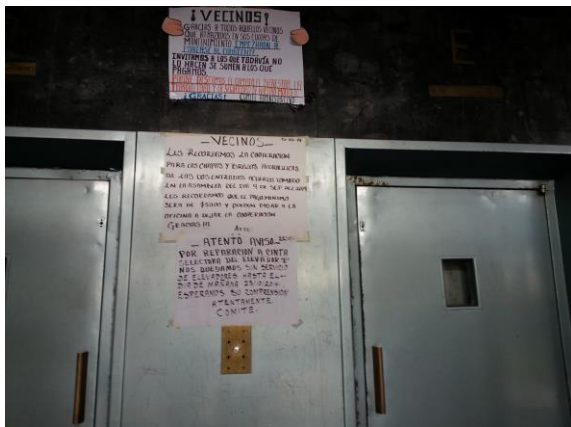 ¡VECINOS!
GRACIAS A TODOS AQUELLOS VECINOS
QUE ATRASADOS EN SUS CUOTAS DE
MANTENIMIENTO EMPEZARON A
INVITAMOS A LOS QUE TODAVÍA NO
LO HACEN SE SUMEN A LOS QUE
PAGAMOS.
¡GRACIAS!
VECINOS
LES RECORDAMOS LA COOPERACION
PARA LAS CHAPAS Y BRAZOS HIDRAULICOS
DE LAS DOS ENTRADAS ACUERDO TOMADO
EN LA ASAMBLEA DEL DIA 4 DE SEP. DEL 2014
LES RECORDAMOS QUE EL PAGO MINIMO
SERA DE Y PUEDEN PASAR A LA
OFICINA A DEJAR LA COOPERACIÓN
GRACIAS!!!
ATENTO AVISO
POR REPARACION A CINTA
SELECTORA DEL ELEVADOR "E"
NOS QUEDAMOS SIN SERVICIO
DE ELEVADORES HASTA EL
DIA DE MAÑANA
ESPERAMOS SU COMPRENSIÓN
ATENTAMENTE.
COMITE.
E